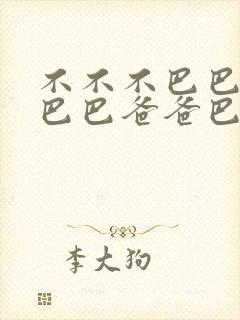 不不不巴巴
巴巴爸爸巴
李大狗